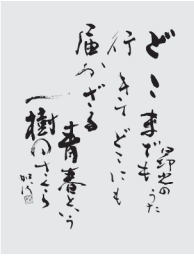 どこまでも
行きてどこにも
届かざる
青春という
一樹のさくら